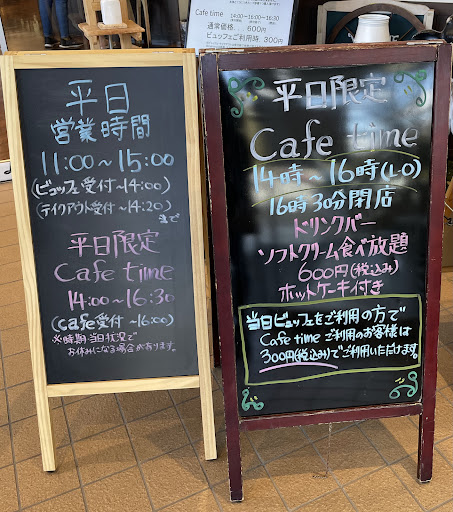 Cafe time 14:00~16:00~16:30
通常価格 600円
ビュッフェご利用時 300円
平日
営業時間
11:00~15:00
(ビュッフェ受付~14:00)
(テイクアウト受付~14:20)
まで
平日限定
Cafe time
14:00~16:30
(cafe受付~16:00)
※時期・当日状況で
お休みになる場合があります。
平日限定
Cafe time
14時~16時(LO)
16時30分閉店
ドリンクバー
ソフトクリーム食べ放題
600円(税込み)
ホットケーキ付き
当日ビュッフェをご利用の方で
Cafe timeご利用のお客様は
300円(税込み)でご利用いただけます。